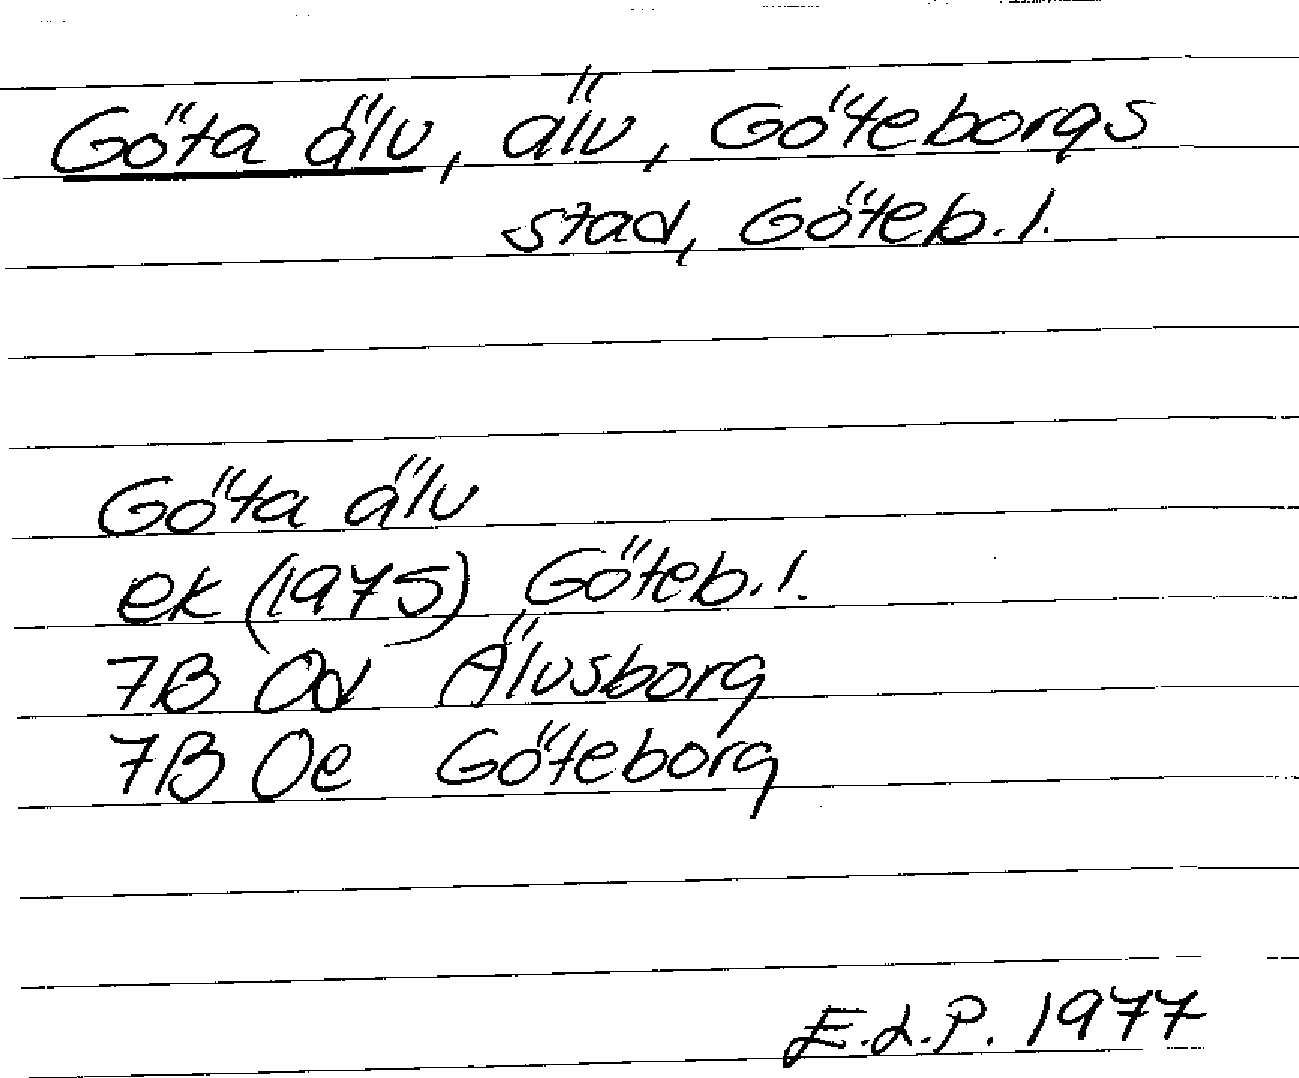 Göta älv, älv, Göteborgs
stad, Göteb. l.
Göta älv
ek (1975) Göteb. l.
7B Od Älvsborg
7B Oe Göteborg
E.L.P. 1977